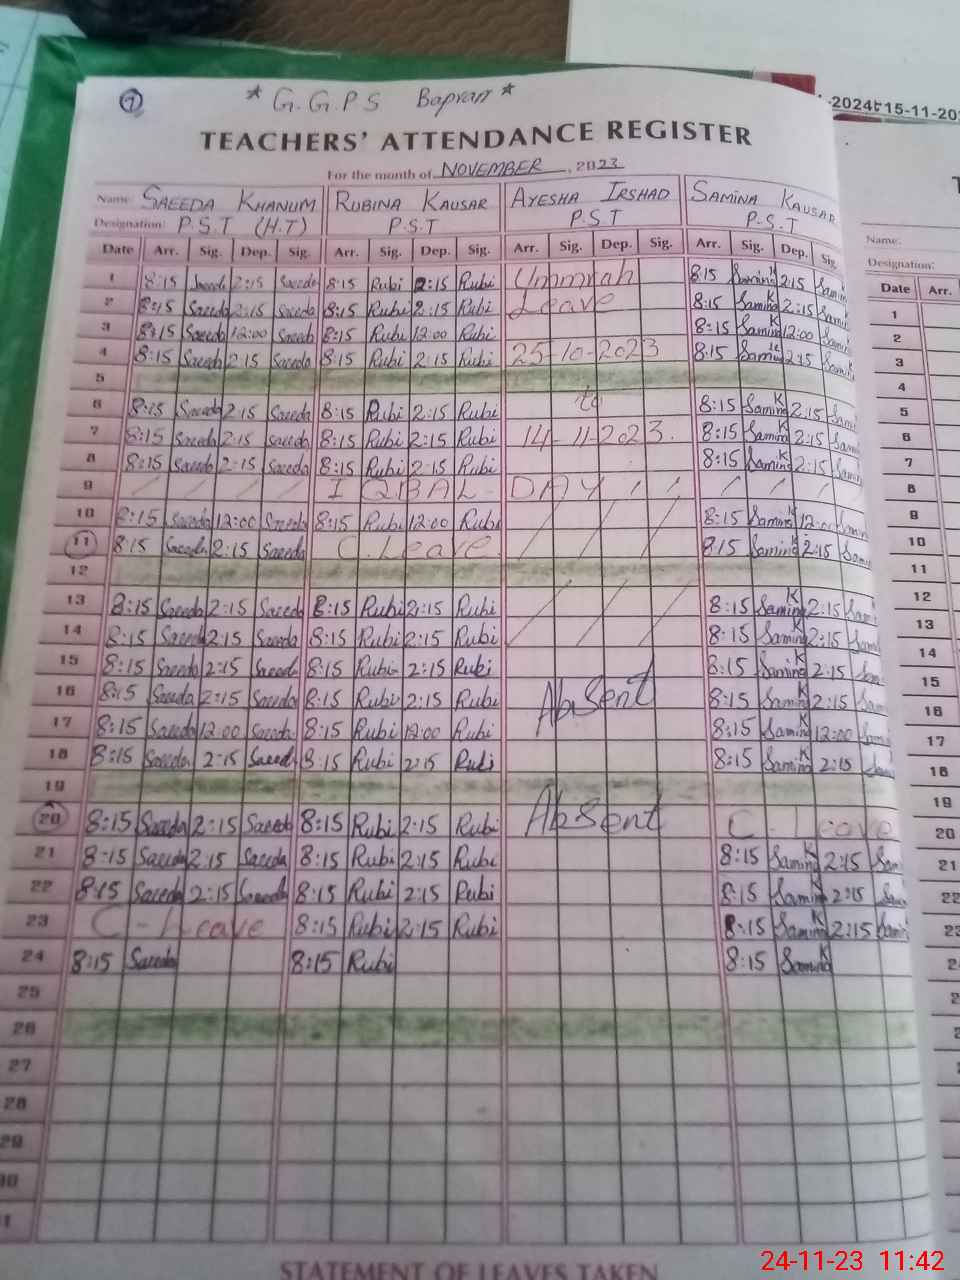 7
* G.G.P.S Bapran *
-2024 15-11-20
TEACHERS' ATTENDANCE REGISTER
For the month of NOVEMBER, 2023
Name: SAEEDA KHANUM RUBINA KAUSAR AYESHA IRSHAD SAMINA KAUSAR
Designation: P.S.T (H.T) P.S.T P.S.T P.S.T
Date Arr. Sig. Dep. Sig. Arr. Sig. Dep. Sig. Arr. Sig. Dep. Sig. Arr. Sig. Dep. Sig.
1 8:15 Saeeda 2:15 Saeeda 8:15 Rubi 2:15 Rubi Ummrah 8:15 Samina K 2:15 Sami
2 8:15 Saeeda 2:15 Saeeda 8:15 Rubi 2:15 Rubi Leave 8:15 Samina K 2:15 Sami
3 8:15 Saeeda 12:00 Saeeda 8:15 Rubi 12:00 Rubi 8:15 Samina K 12:00 Sami
4 8:15 Saeeda 2:15 Saeeda 8:15 Rubi 2:15 Rubi 25-10-2023 8:15 Samina K 2:15 Sami
5
6 8:15 Saeeda 2:15 Saeeda 8:15 Rubi 2:15 Rubi to 8:15 Samina K 2:15 Sami
7 8:15 Saeeda 2:15 Saeeda 8:15 Rubi 2:15 Rubi 14-11-2023. 8:15 Samina K 2:15 Sami
8 8:15 Saeeda 2:15 Saeeda 8:15 Rubi 2:15 Rubi 8:15 Samina K 2:15 Sami
9 / / / / IQBAL - DAY / / / / / /
10 8:15 Saeeda 12:00 Saeeda 8:15 Rubi 12:00 Rubi / / / 8:15 Samina K 12:00 Sami
11 8:15 Saeeda 2:15 Saeeda C.Leave. / / / 8:15 Samina K 2:15 Sami
12
13 8:15 Saeeda 2:15 Saeeda 8:15 Rubi 2:15 Rubi / / / 8:15 Samina K 2:15 Sami
14 8:15 Saeeda 2:15 Saeeda 8:15 Rubi 2:15 Rubi / / / 8:15 Samina K 2:15 Sami
15 8:15 Saeeda 2:15 Saeeda 8:15 Rubi 2:15 Rubi 8:15 Samina K 2:15 Sam
16 8:15 Saeeda 2:15 Saeeda 8:15 Rubi 2:15 Rubi Absent 8:15 Samina K 2:15 Sam
17 8:15 Saeeda 12:00 Saeeda 8:15 Rubi 12:00 Rubi 8:15 Samina K 12:00 Sami
18 8:15 Saeeda 2:15 Saeed 8:15 Rubi 2:15 Rubi 8:15 Samina K 2:15 Sam
19
20 8:15 Saeeda 2:15 Saeeda 8:15 Rubi 2:15 Rubi Absent C - Leave
21 8:15 Saeeda 2:15 Saeeda 8:15 Rubi 2:15 Rubi 8:15 Samina K 2:15 Sam
22 8:15 Saeeda 2:15 Saeeda 8:15 Rubi 2:15 Rubi 8:15 Samina K 2:15 Sa
23 C - Leave 8:15 Rubi 2:15 Rubi 8:15 Samina K 2:15 Sami
24 8:15 Saeeda 8:15 Rubi 8:15 Samina K
25
26
27
28
29
30
1
STATEMENT OF LEAVES TAKEN
Name:
Designation:
Date Arr.
1
2
3
4
5
6
7
8
9
10
11
12
13
14
15
16
17
18
19
20
21
22
23
24-11-23 11:42